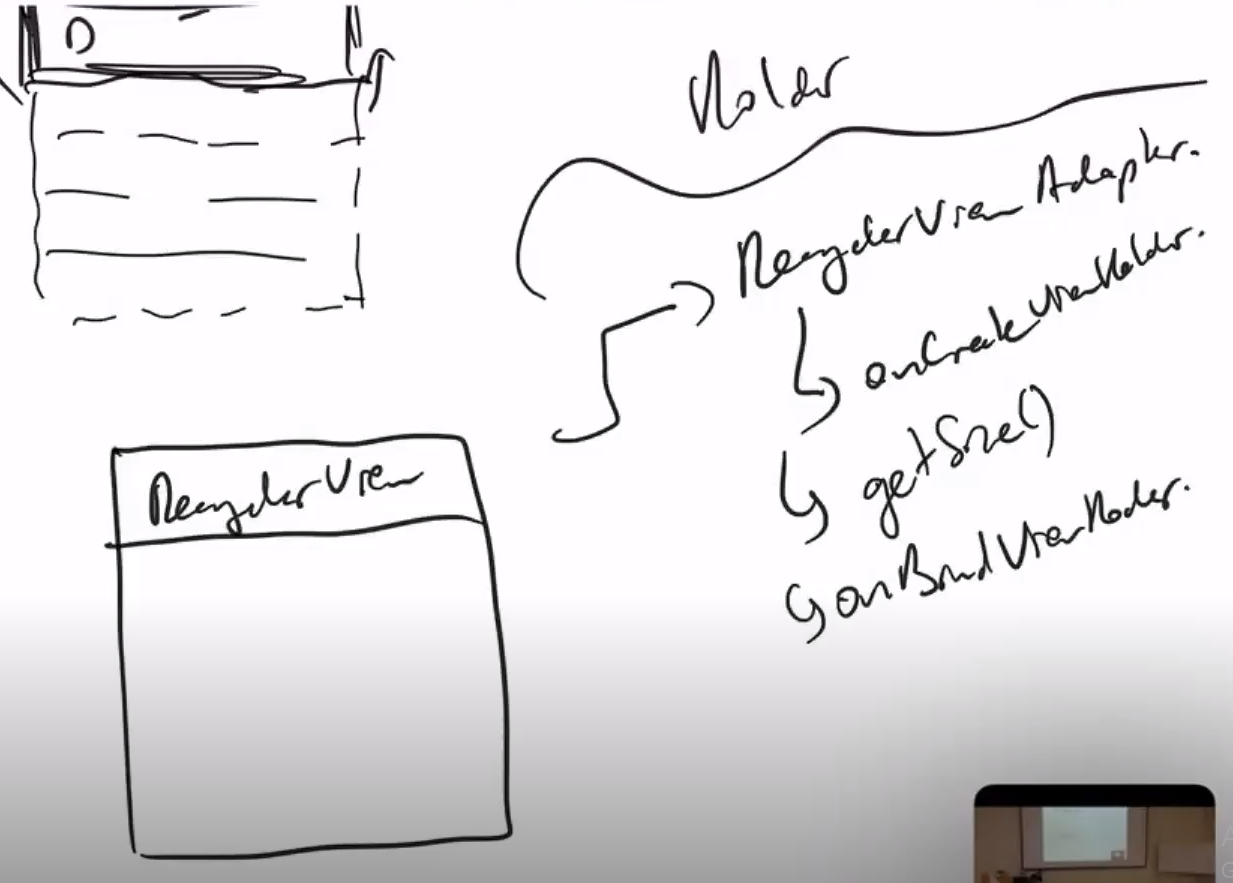 D
Holder
RecyclerView Adapter.
onCreateViewHolder.
getSize()
onBindViewHolder.
RecyclerView